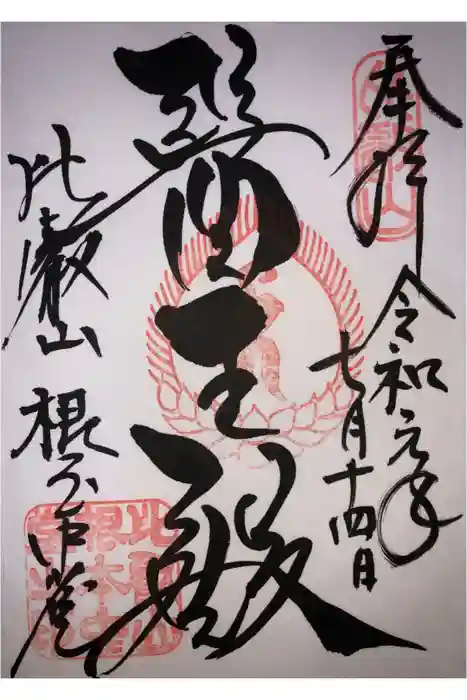 奉拝
令和元年
七月十四日
醫王殿
比叡山
根本中堂
比叡山
根本中